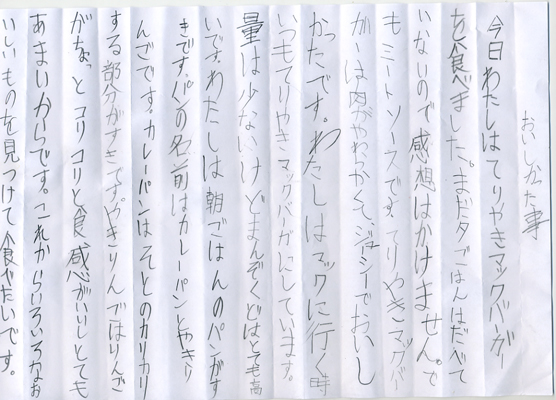 おいしかった事
今日わたしはてりやきマックバーガー
を食べました。まだ夕ごはんはたべて
いないので感想はかけません。で
もミートソースです。てりやきマックバー
ガーは肉がやわらかくて、ジューシーでおいし
かったです。わたしはマックに行く時
いつもてりやきマックバーガーにしています。
量は少ないけどまんぞくどはとても高
いです。わたしは朝ごはんのパンがす
きです。パンの名前はカレーパンとやきり
んごです。カレーパンはそとのカリカリ
する部分がすきです。やきりんごはりんご
がちょっとコリコリと食感がいいしとても
あまいからです。これからいろいろなお
いしいものを見つけて食べたいです。